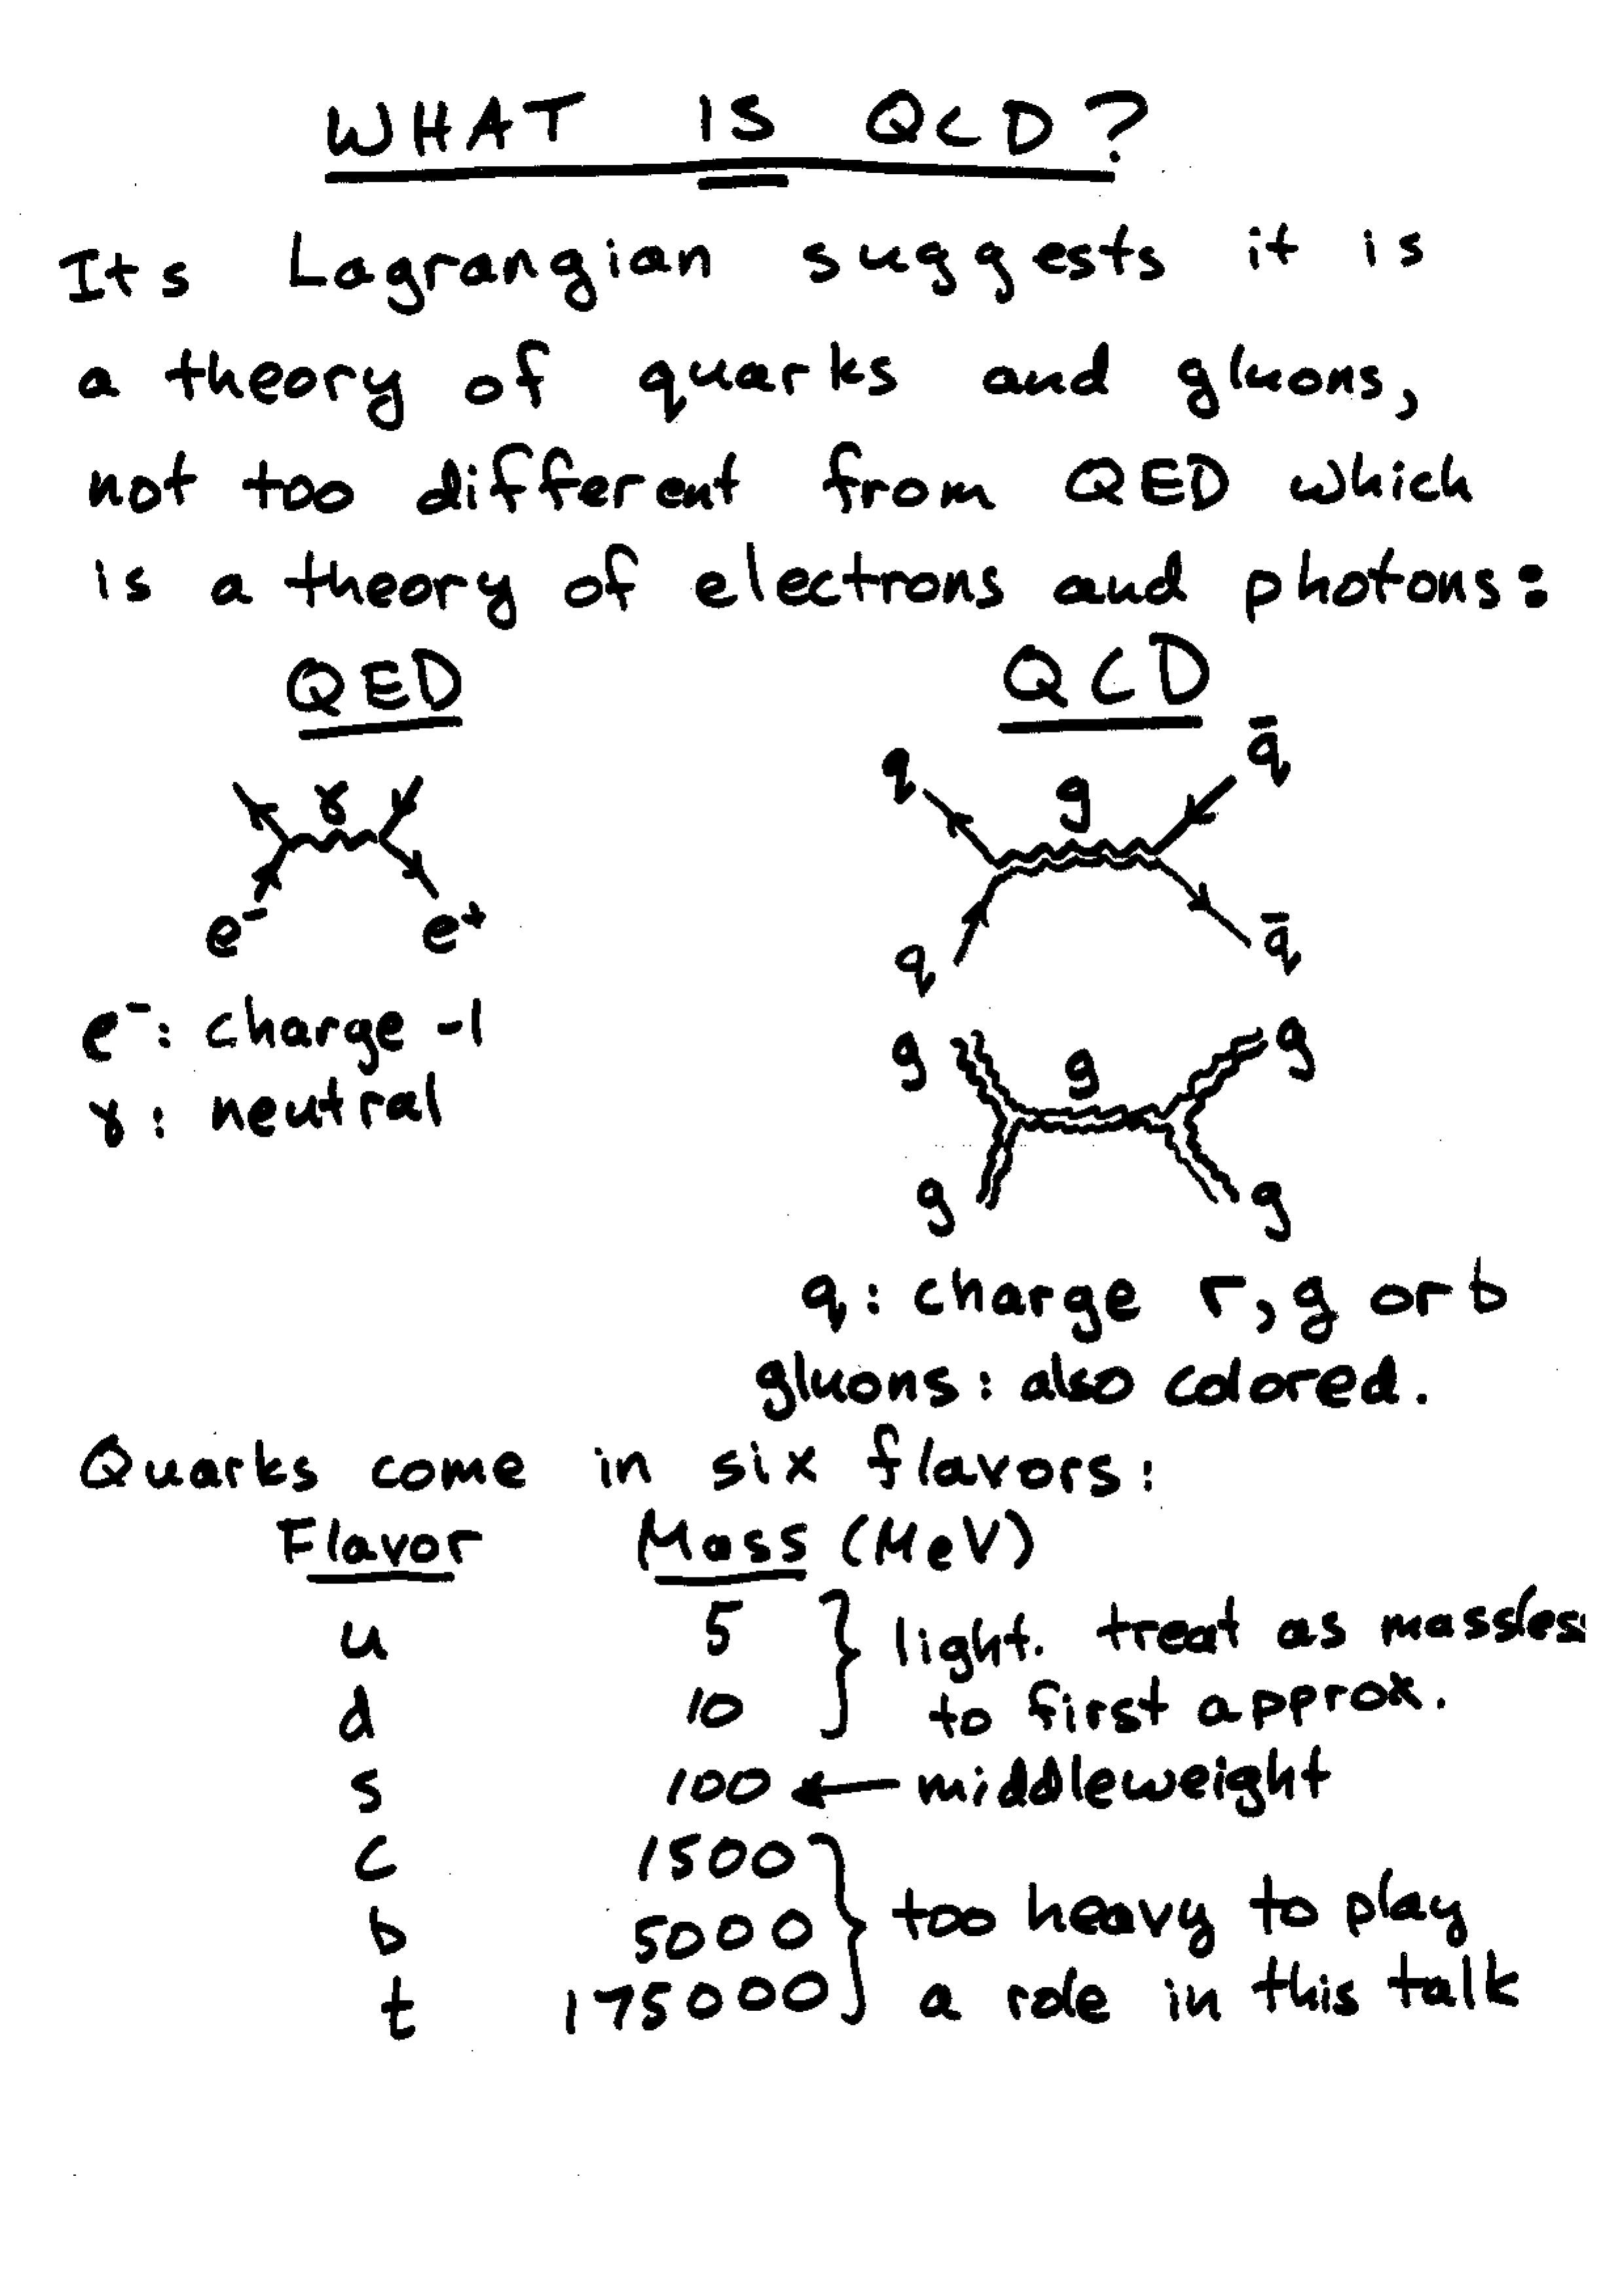 WHAT IS QCD?
Its Lagrangian suggests it is
a theory of quarks and gluons,
not too different from QED which
is a theory of electrons and photons:
QED QCD
γ
e⁻ e⁺
q g q̄
q q̄
e⁻: charge -1
γ: neutral
g g g
g g
q: charge r, g or b
gluons: also colored.
Quarks come in six flavors:
Flavor Mass (MeV)
u 5 } light. treat as massless
d 10 to first approx.
s 100 ← middleweight
c 1500
b 5000 } too heavy to play
t 175000 a role in this talk